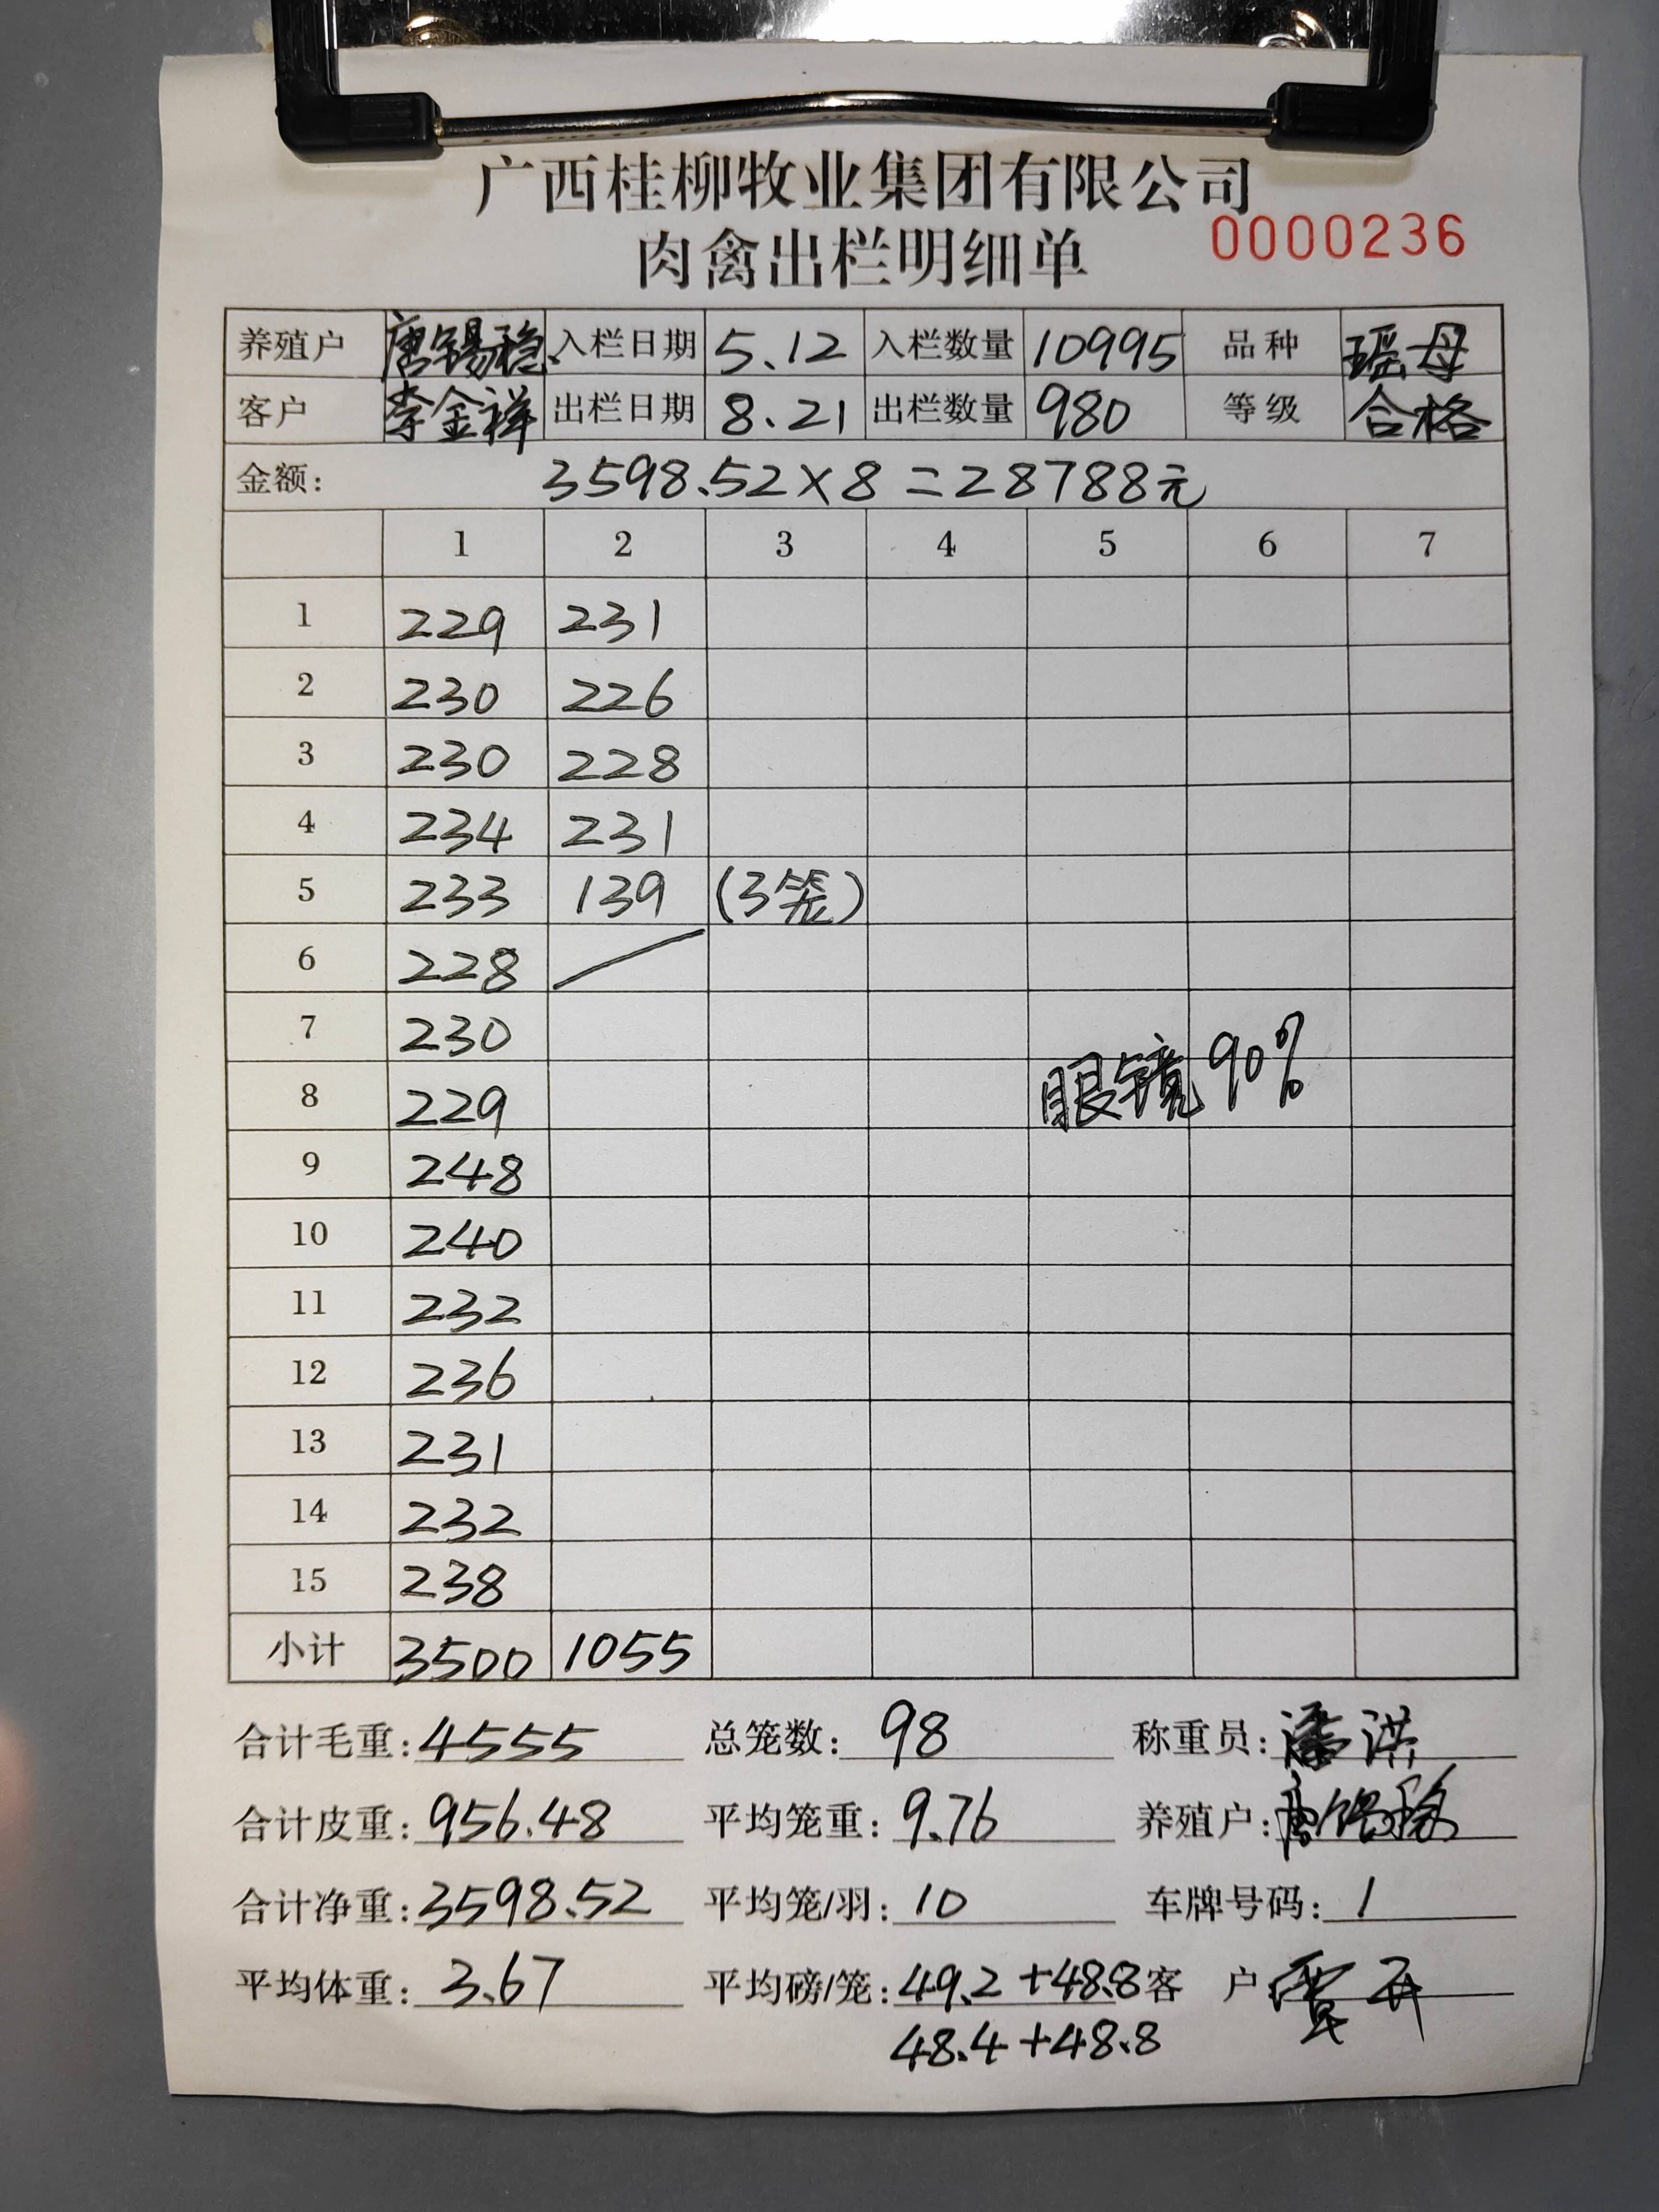 广西桂柳牧业集团有限公司
肉禽出栏明细单 0000236
养殖户 唐锡稳 入栏日期 5.12 入栏数量 10995 品种 瑶母
客户 李金祥 出栏日期 8.21 出栏数量 980 等级 合格
金额: 3598.52×8=28788元
1 2 3 4 5 6 7
1 229 231
2 230 226
3 230 228
4 234 231
5 233 139 (3笼)
6 228
7 230
眼镜90%
8 229
9 248
10 240
11 232
12 236
13 231
14 232
15 238
小计 3500 1055
合计毛重: 4555 总笼数: 98 称重员: 潘洪
合计皮重: 956.48 平均笼重: 9.76 养殖户: 唐锡稳
合计净重: 3598.52 平均笼/羽: 10 车牌号码: 1
平均体重: 3.67 平均磅/笼: 49.2+48.8 客户
48.4+48.8